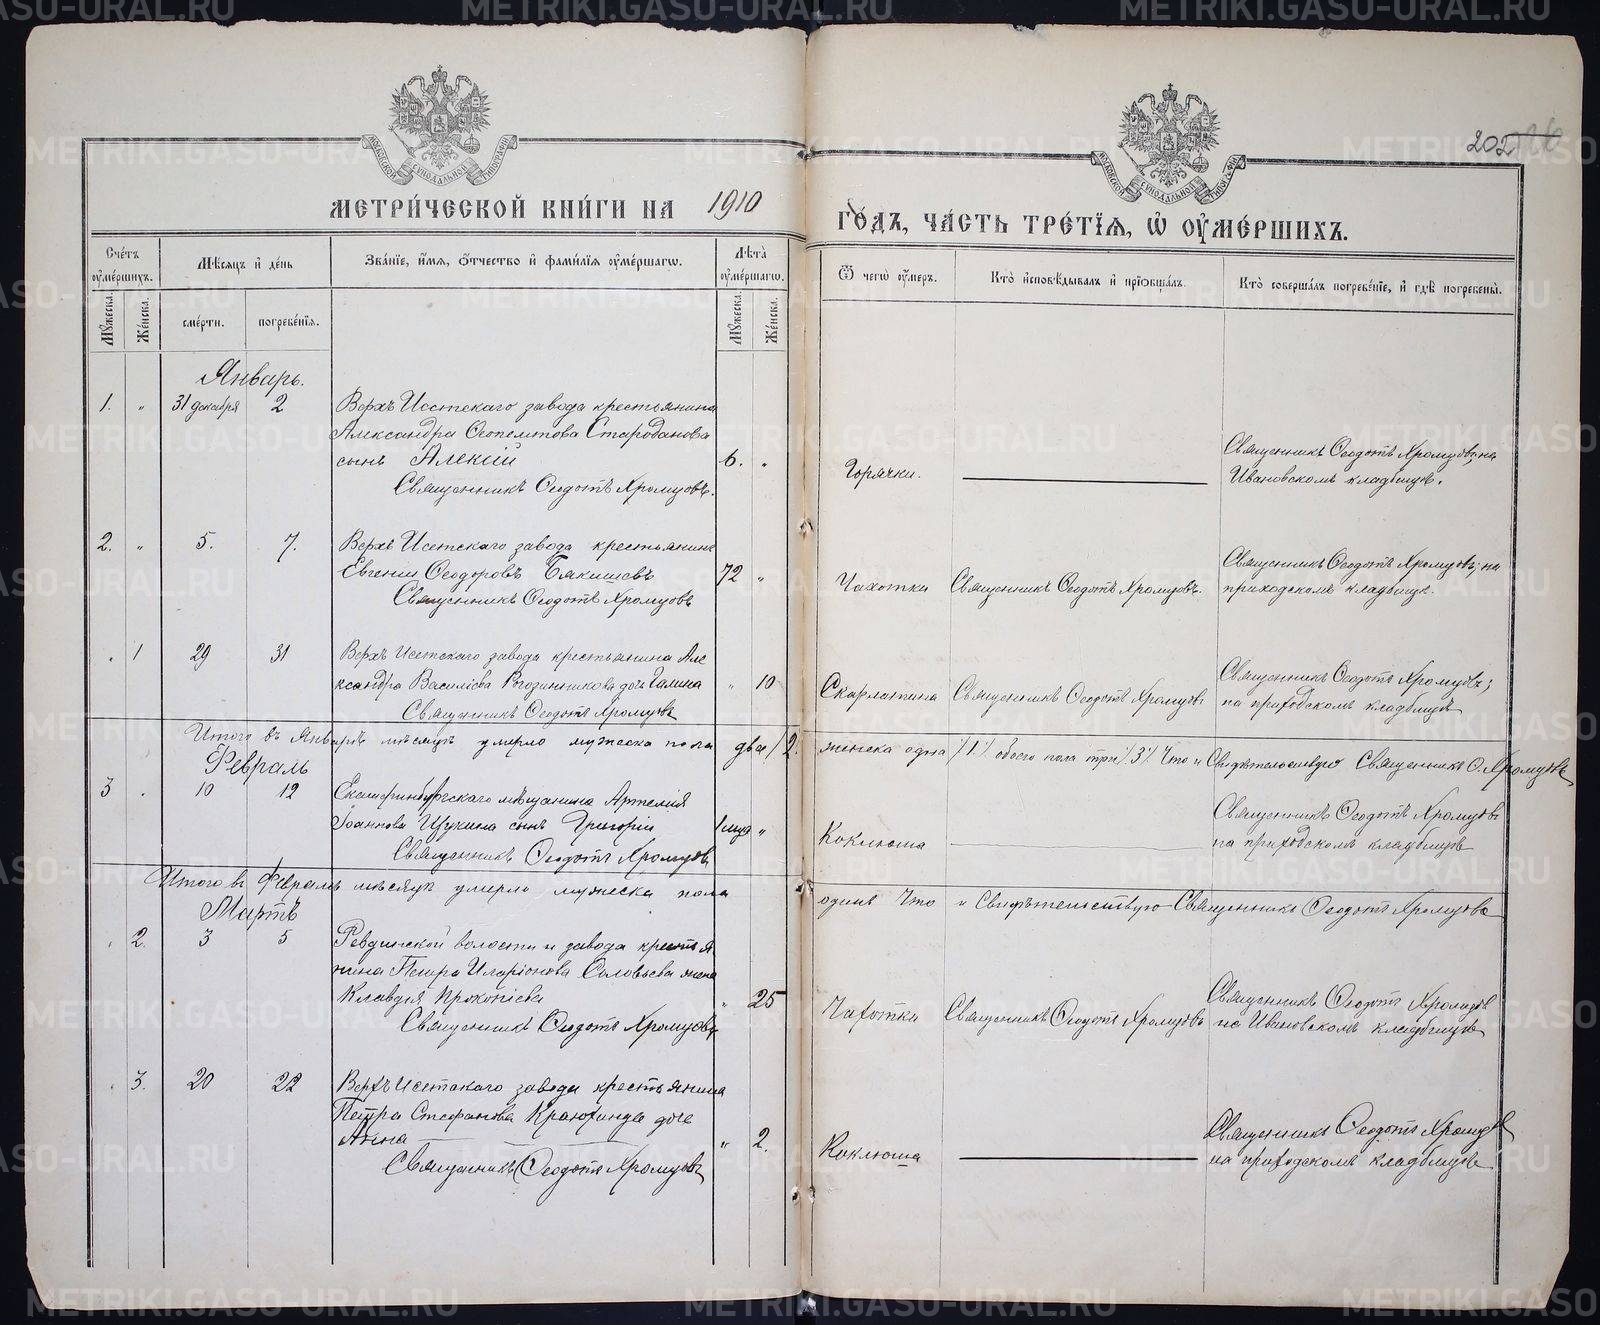 202
МЕТРИ́ЧЕСКОЙ КНИ́ГИ НА 1910 ГО́ДЪ, ЧА́СТЬ ТРЕ́ТІЯ, Ѡ ОУМЕ́РШИХЪ.
Сче́тъ оуме́ршихъ.
Мꙋжеска.
Же́нска.
Мѣ́сяцъ и҆ де́нь
сме́рти.
погребе́нїя.
Зва́нїе, и҆́мя, ѻ҆́тчество и҆ фами́лїя оуме́ршагѡ.
Лѣ́та оуме́ршагѡ.
Мꙋжеска.
Же́нска.
Ѿ чегѡ̀ оу́меръ.
Кто̀ и҆сповѣ́дывалъ и҆ прїѻбща́лъ.
Кто̀ соверша́лъ погребе́нїе, и҆ гдѣ̀ погребены̀.
Январь.
1. „ 31 декабря 2
Верхъ Исетскаго завода крестьянина
Александра Староданова
сынъ Алексій 6. „
Священникъ Ѳеодотъ Хромцовъ.
Горячки.
Священникъ Ѳеодотъ Хромцовъ; на
Ивановскомъ кладбищѣ.
2. „ 5. 7.
Верхъ Исетскаго завода крестьянинъ
Евгеній Ѳеодоровъ Бякишевъ 72 „
Священникъ Ѳеодотъ Хромцовъ
Чахотки
Священникъ Ѳеодотъ Хромцовъ.
Священникъ Ѳеодотъ Хромцовъ; на
приходскомъ кладбищѣ.
„ 1 29 31
Верхъ Исетскаго завода крестьянина Але
ксандра Василіева Рогозинникова дочь Галина „ 10
Священникъ Ѳеодотъ Хромцовъ
Скарлатина
Священникъ Ѳеодотъ Хромцовъ
Священникъ Ѳеодотъ Хромцовъ;
на приходскомъ кладбищѣ
Итого въ Январѣ мѣсяцѣ умерло мужеска пола два /2. женска одна /1./ обоего пола три /3/. Что и Свидѣтельствую Священникъ Ѳ. Хромцовъ
Февраль
3 „ 10 12
Екатеринбургскаго мѣщанина Артемія
Іоаннова Щукина сынъ Григорій „
Священникъ Ѳеодотъ Хромцовъ
Коклюша
Священникъ Ѳеодотъ Хромцовъ
на приходскомъ кладбищѣ
Итого въ Февралѣ мѣсяцѣ умерло мужеска пола одинъ Что и Свидѣтельствую Священникъ Ѳеодотъ Хромцовъ
Мартъ
„ 2. 3 5
Ревдинской волости и завода крестья
нина Петра Иларіонова Соловьева жена
Клавдія Прокопіева „ 25
Священникъ Ѳеодотъ Хромцовъ
Чахотки
Священникъ Ѳеодотъ Хромцовъ
Священникъ Ѳеодотъ Хромцовъ
на Ивановскомъ кладбищѣ
„ 3. 20 22
Верхъ Исетскаго завода крестьянина
Петра Стефанова дочь
Анна „ 2.
Священникъ Ѳеодотъ Хромцовъ
Коклюша
Священникъ Ѳеодотъ Хромцовъ
на приходскомъ кладбищѣ
METRIKI.GASO-URAL.RU